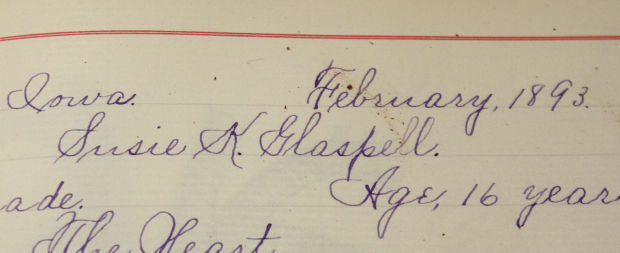 Iowa. February, 1893.
Susie K. Glaspell.
ade. Age, 16 year
The Heart